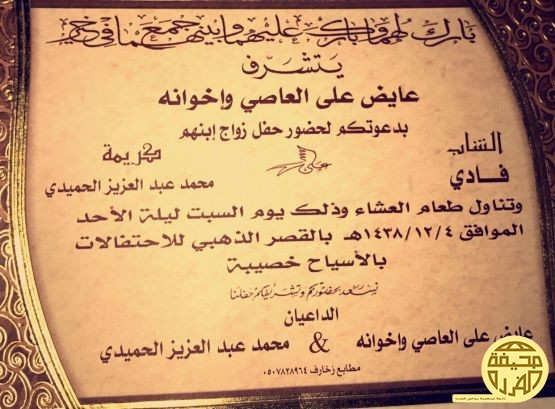 بارك لهما وبارك عليهما واجمع بينهما في خير
يتشرف
عايض على العاصي وإخوانه
بدعوتكم لحضور حفل زواج إبنهم
الشاب
فادي
على
كريمة
محمد عبد العزيز الحميدي
وتناول طعام العشاء وذلك يوم السبت ليلة الأحد
الموافق ١٤٣٨/١٢/٤هـ بالقصر الذهبي للاحتفالات
بالأسياح خصيبة
نسعد بحضوركم وتشريفكم حفلنا
الداعيان
عايض على العاصي وإخوانه & محمد عبد العزيز الحميدي
مطابع زخارف ٠٥٠٧٨٢٨٩٦٤
صحيفة